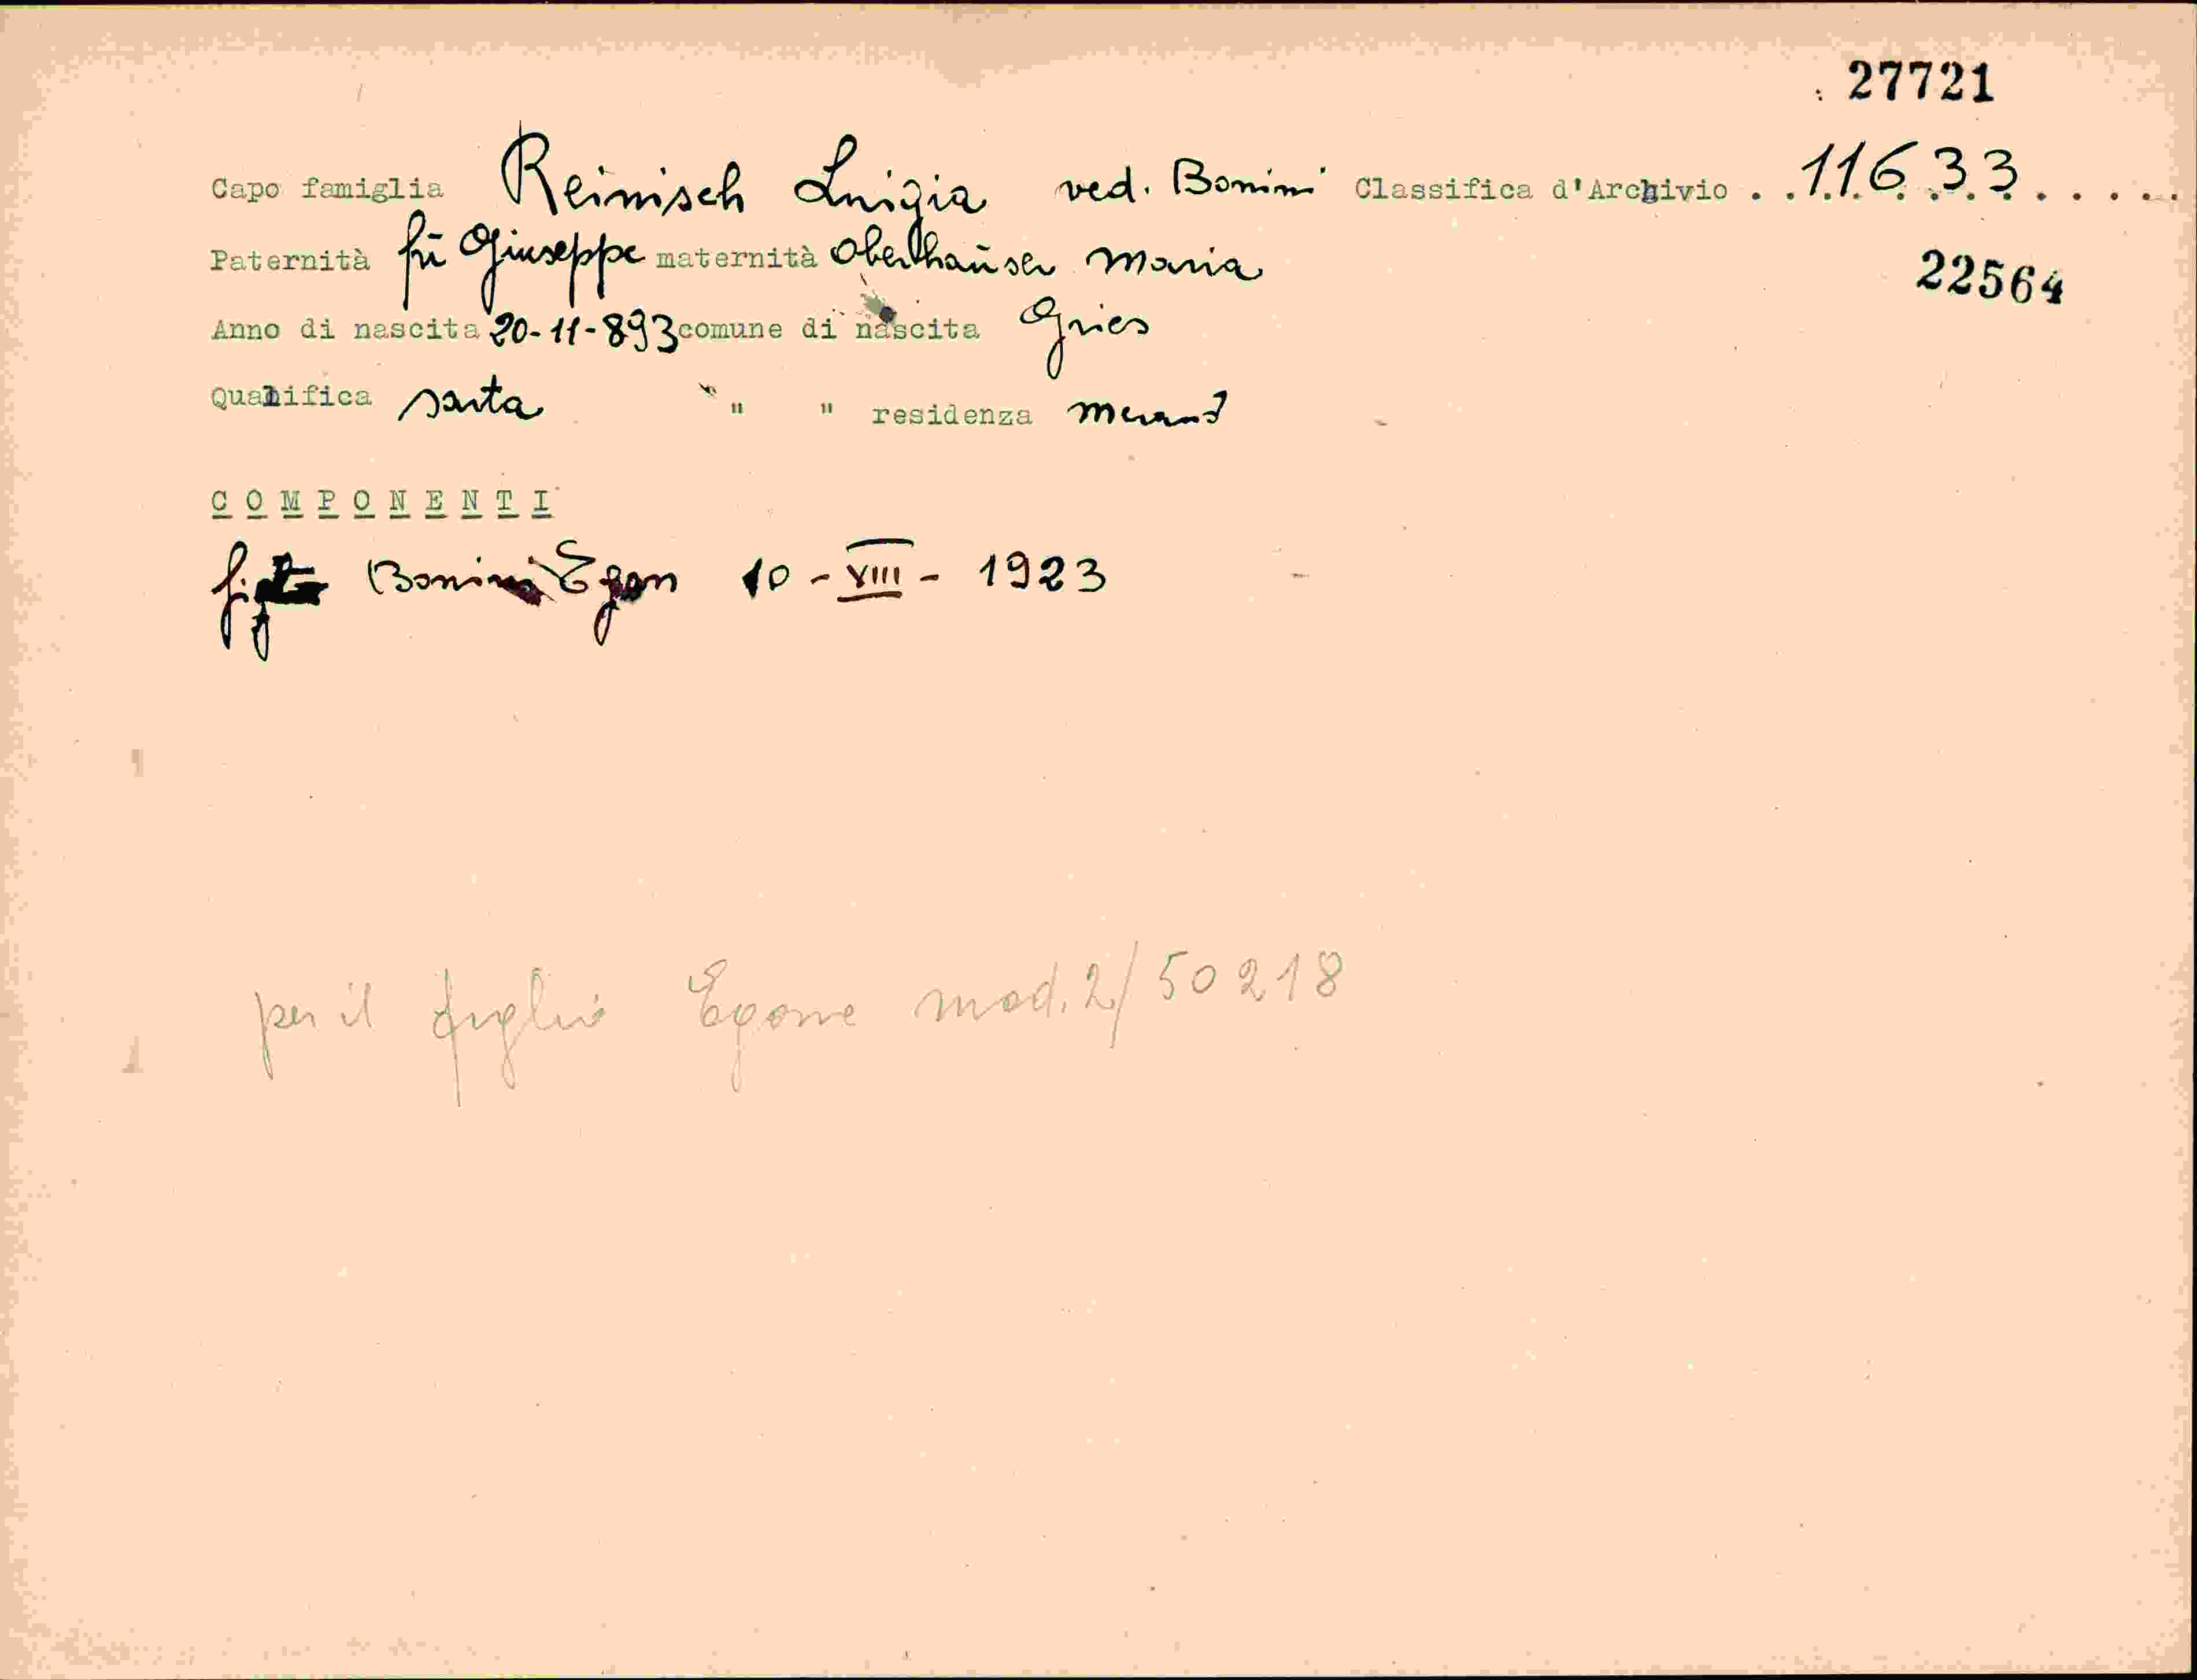 27721
Capo famiglia Reinisch Luigia ved. Bonini Classifica d'Archivio . . 11633 . . . . .
Paternità fu Giuseppe maternità Oberhauser Maria
22564
Anno di nascita 20-11-893 comune di nascita Gries
Qualifica sarta " " residenza Merano
COMPONENTI
Bonini Egon 10-VIII-1923
per il figlio Egone mod. 2/50218